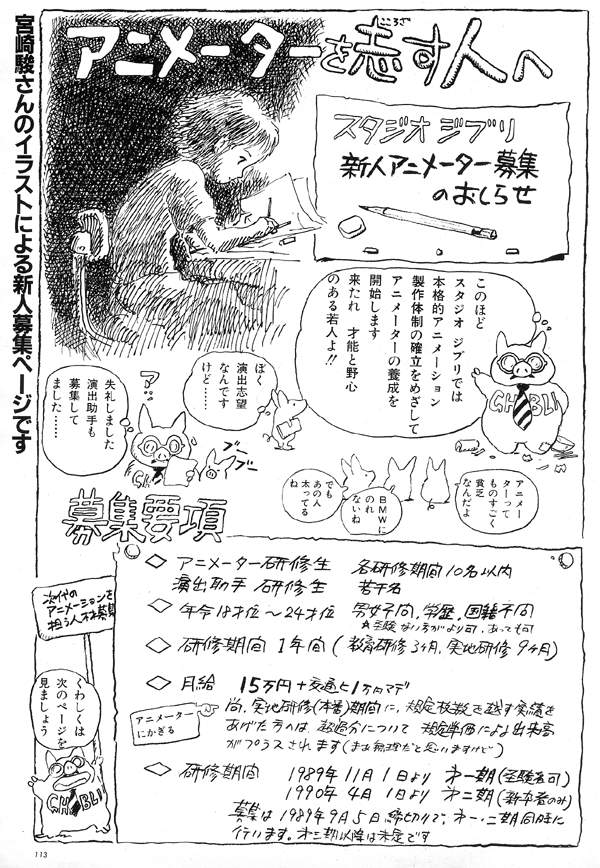 宮崎駿さんのイラストによる新人募集ページです
アニメーターを志す人へ
こころざ
スタジオ ジブリ
新人アニメーター募集
のおしらせ
このほど
スタジオ ジブリでは
本格的アニメーション
製作体制の確立をめざして
アニメーターの養成を
開始します
来たれ 才能と野心
のある若人よ!!
GHIBLI
ぼく
演出志望
なんです
けど……
?
失礼しました
演出助手も
募集して
ました……
ブー
ブー
アニメー
ターって
ものすごく
貧乏
なんだよ
BMWに
のれ
ないね
でも
あの人
太ってる
ね
募集要項
◇ アニメーター研修生 各研修期間10名以内
演出助手 研修生 若干名
◇ 年令18才位〜24才位 男女不問、学歴、国籍不問
経験ない方がより可、あっても可
◇ 研修期間 1年間 (教育研修3ヵ月、実地研修9ヶ月)
◇ 月給 15万円+交通ヒ1万円マデ
アニメーター
にかぎる
尚、実地研修(本番)期間に、規定枚数を越す実績を
あげた方へは、超過分について 規定単価により出来高
がプラスされます(まあ無理だと思いますけど)
◇ 研修期間 1989年11月1日より 第一期(経験者可)
1990年4月1日より 第二期(新卒者のみ)
募集は1989年9月5日締切りで、第一・二期同時に
行います。第三期以降は未定です
次代の
アニメーションを
担う人材募集
くわしくは
次のページを
見ましょう
GHIBLI
113